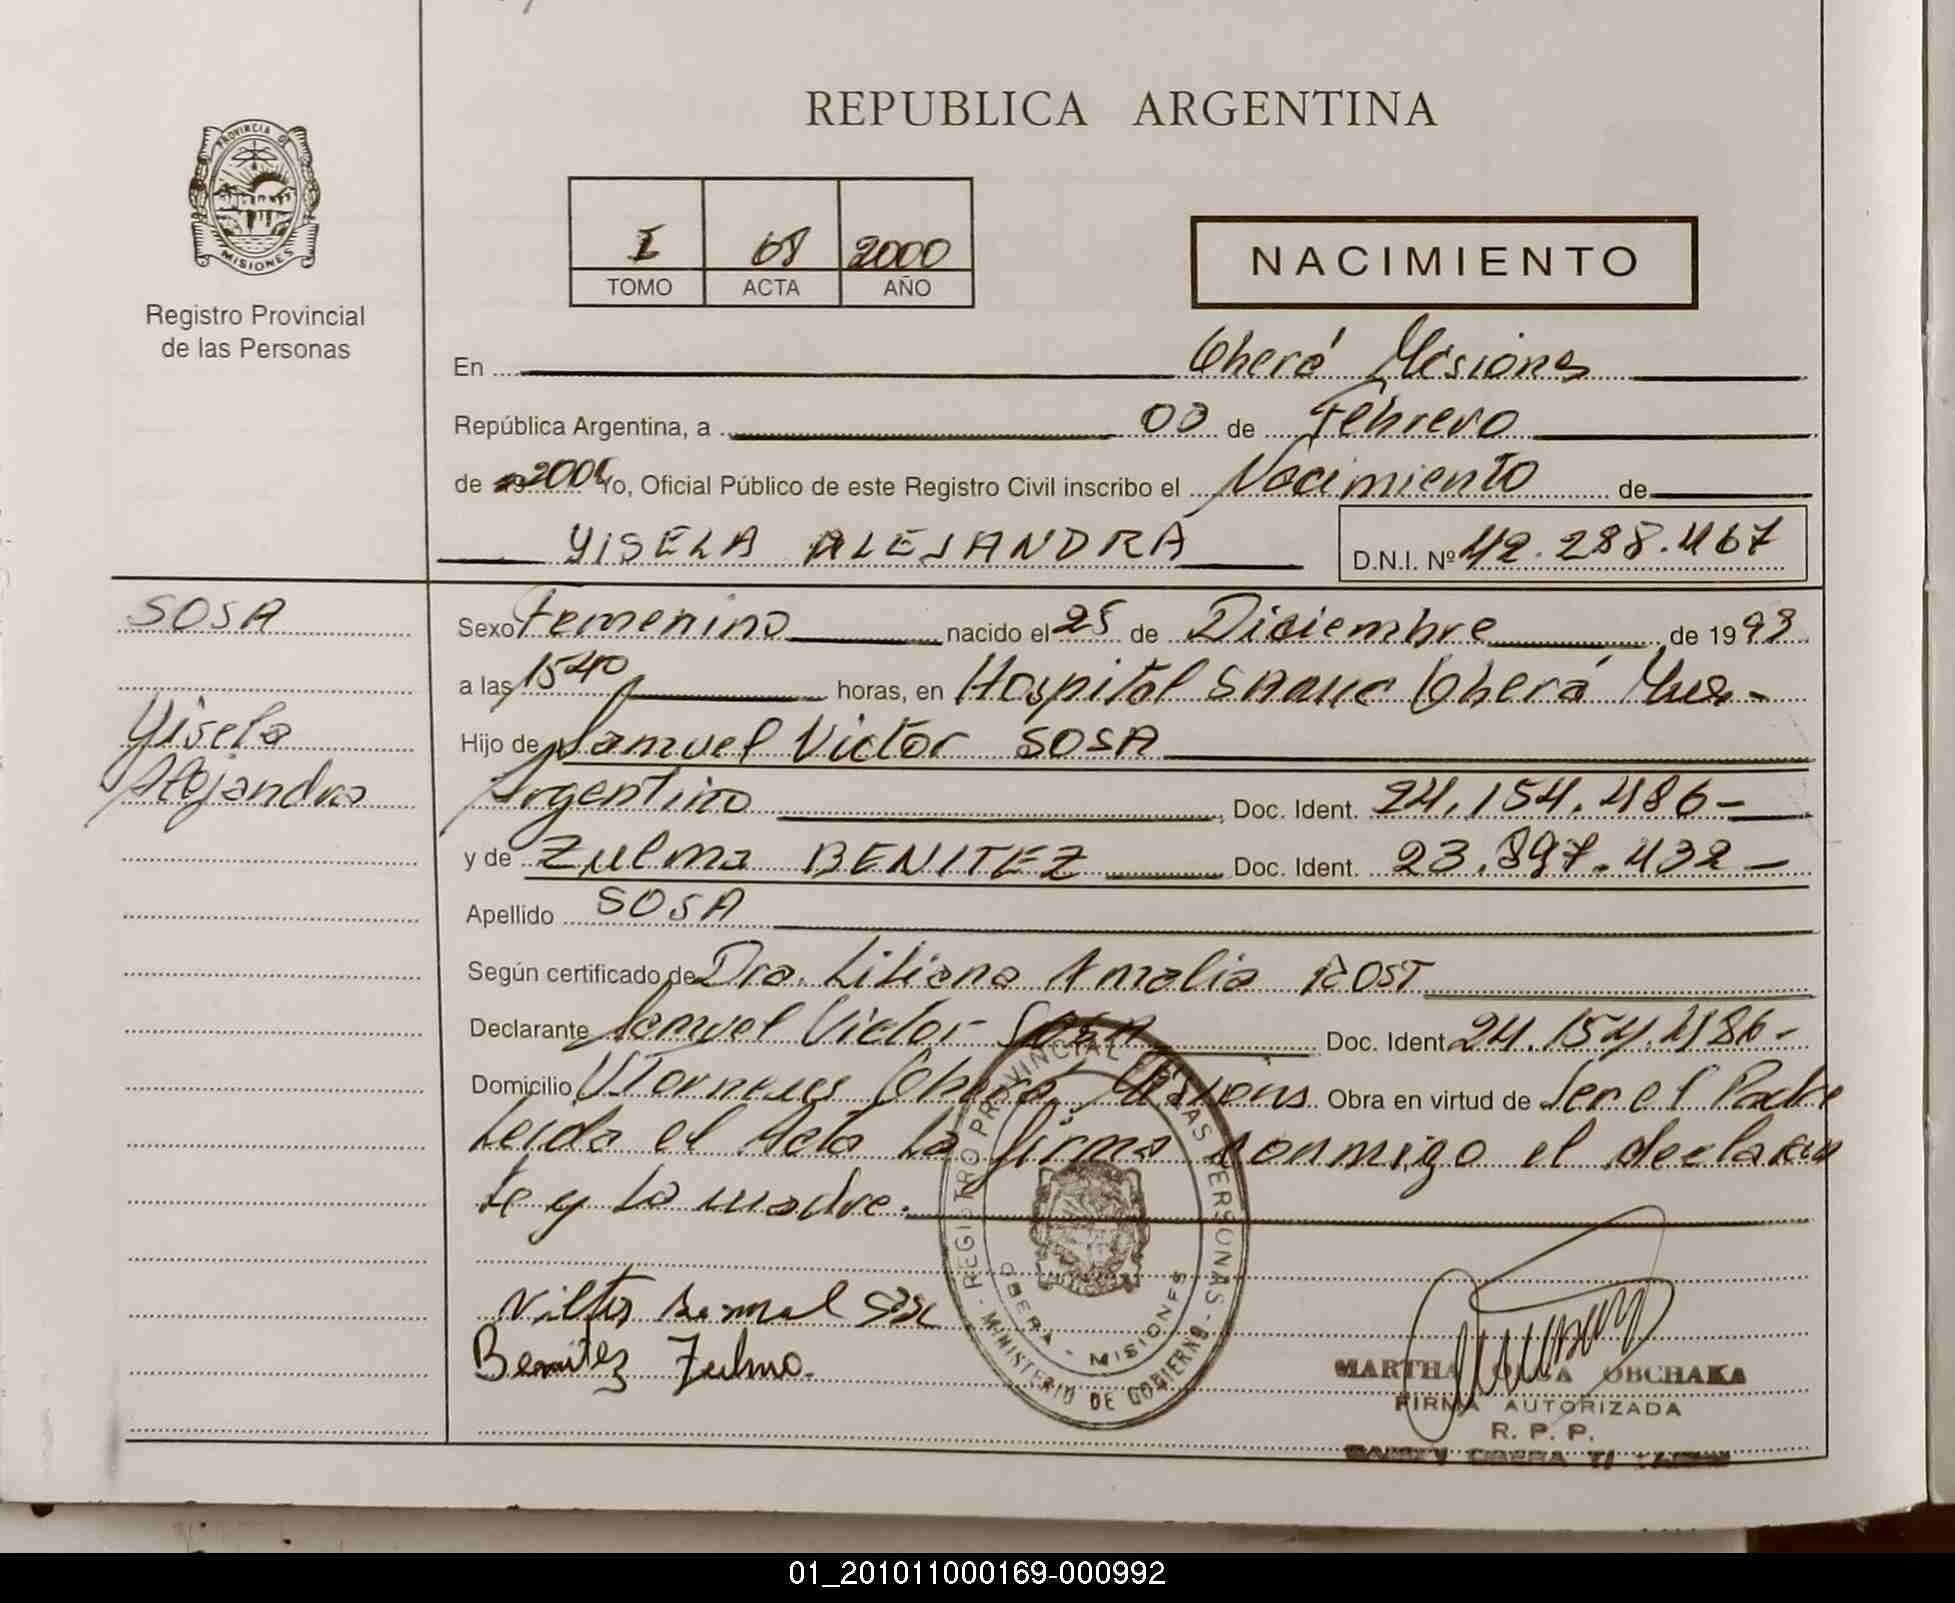 REPUBLICA ARGENTINA
PROVINCIA DE
MISIONES
Registro Provincial
de las Personas
I 68 2000
TOMO ACTA AÑO
NACIMIENTO
En Oberá Misiones
República Argentina, a 00 de Febrero
de 2000 Yo, Oficial Público de este Registro Civil inscribo el Nacimiento de
YISELA ALEJANDRA D.N.I. Nº 42.288.467
SOSA
Yisela
Alejandra
Sexo Femenino nacido el 25 de Diciembre de 1999
a las 1540 horas, en Hospital SAMIC Oberá
Hijo de Samuel Victor SOSA
Argentino Doc. Ident. 24.154.486-
y de Zulma BENITEZ Doc. Ident. 23.897.432-
Apellido SOSA
Según certificado de Dra. Liliana Amalia ROST
Declarante Samuel Victor SOSA Doc. Ident. 24.154.486-
Domicilio Oberá Misiones Obra en virtud de Ser el Padre
Leida el Acta la firma conmigo el declaran
te y la madre.
REGISTRO PROVINCIAL DE LAS PERSONAS - MINISTERIO DE GOBIERNO -
OBERA - MISIONES
Benitez Zulma.
MARTHA OLGA OBCHAKA
FIRMA AUTORIZADA
R. P. P.
01_201011000169-000992